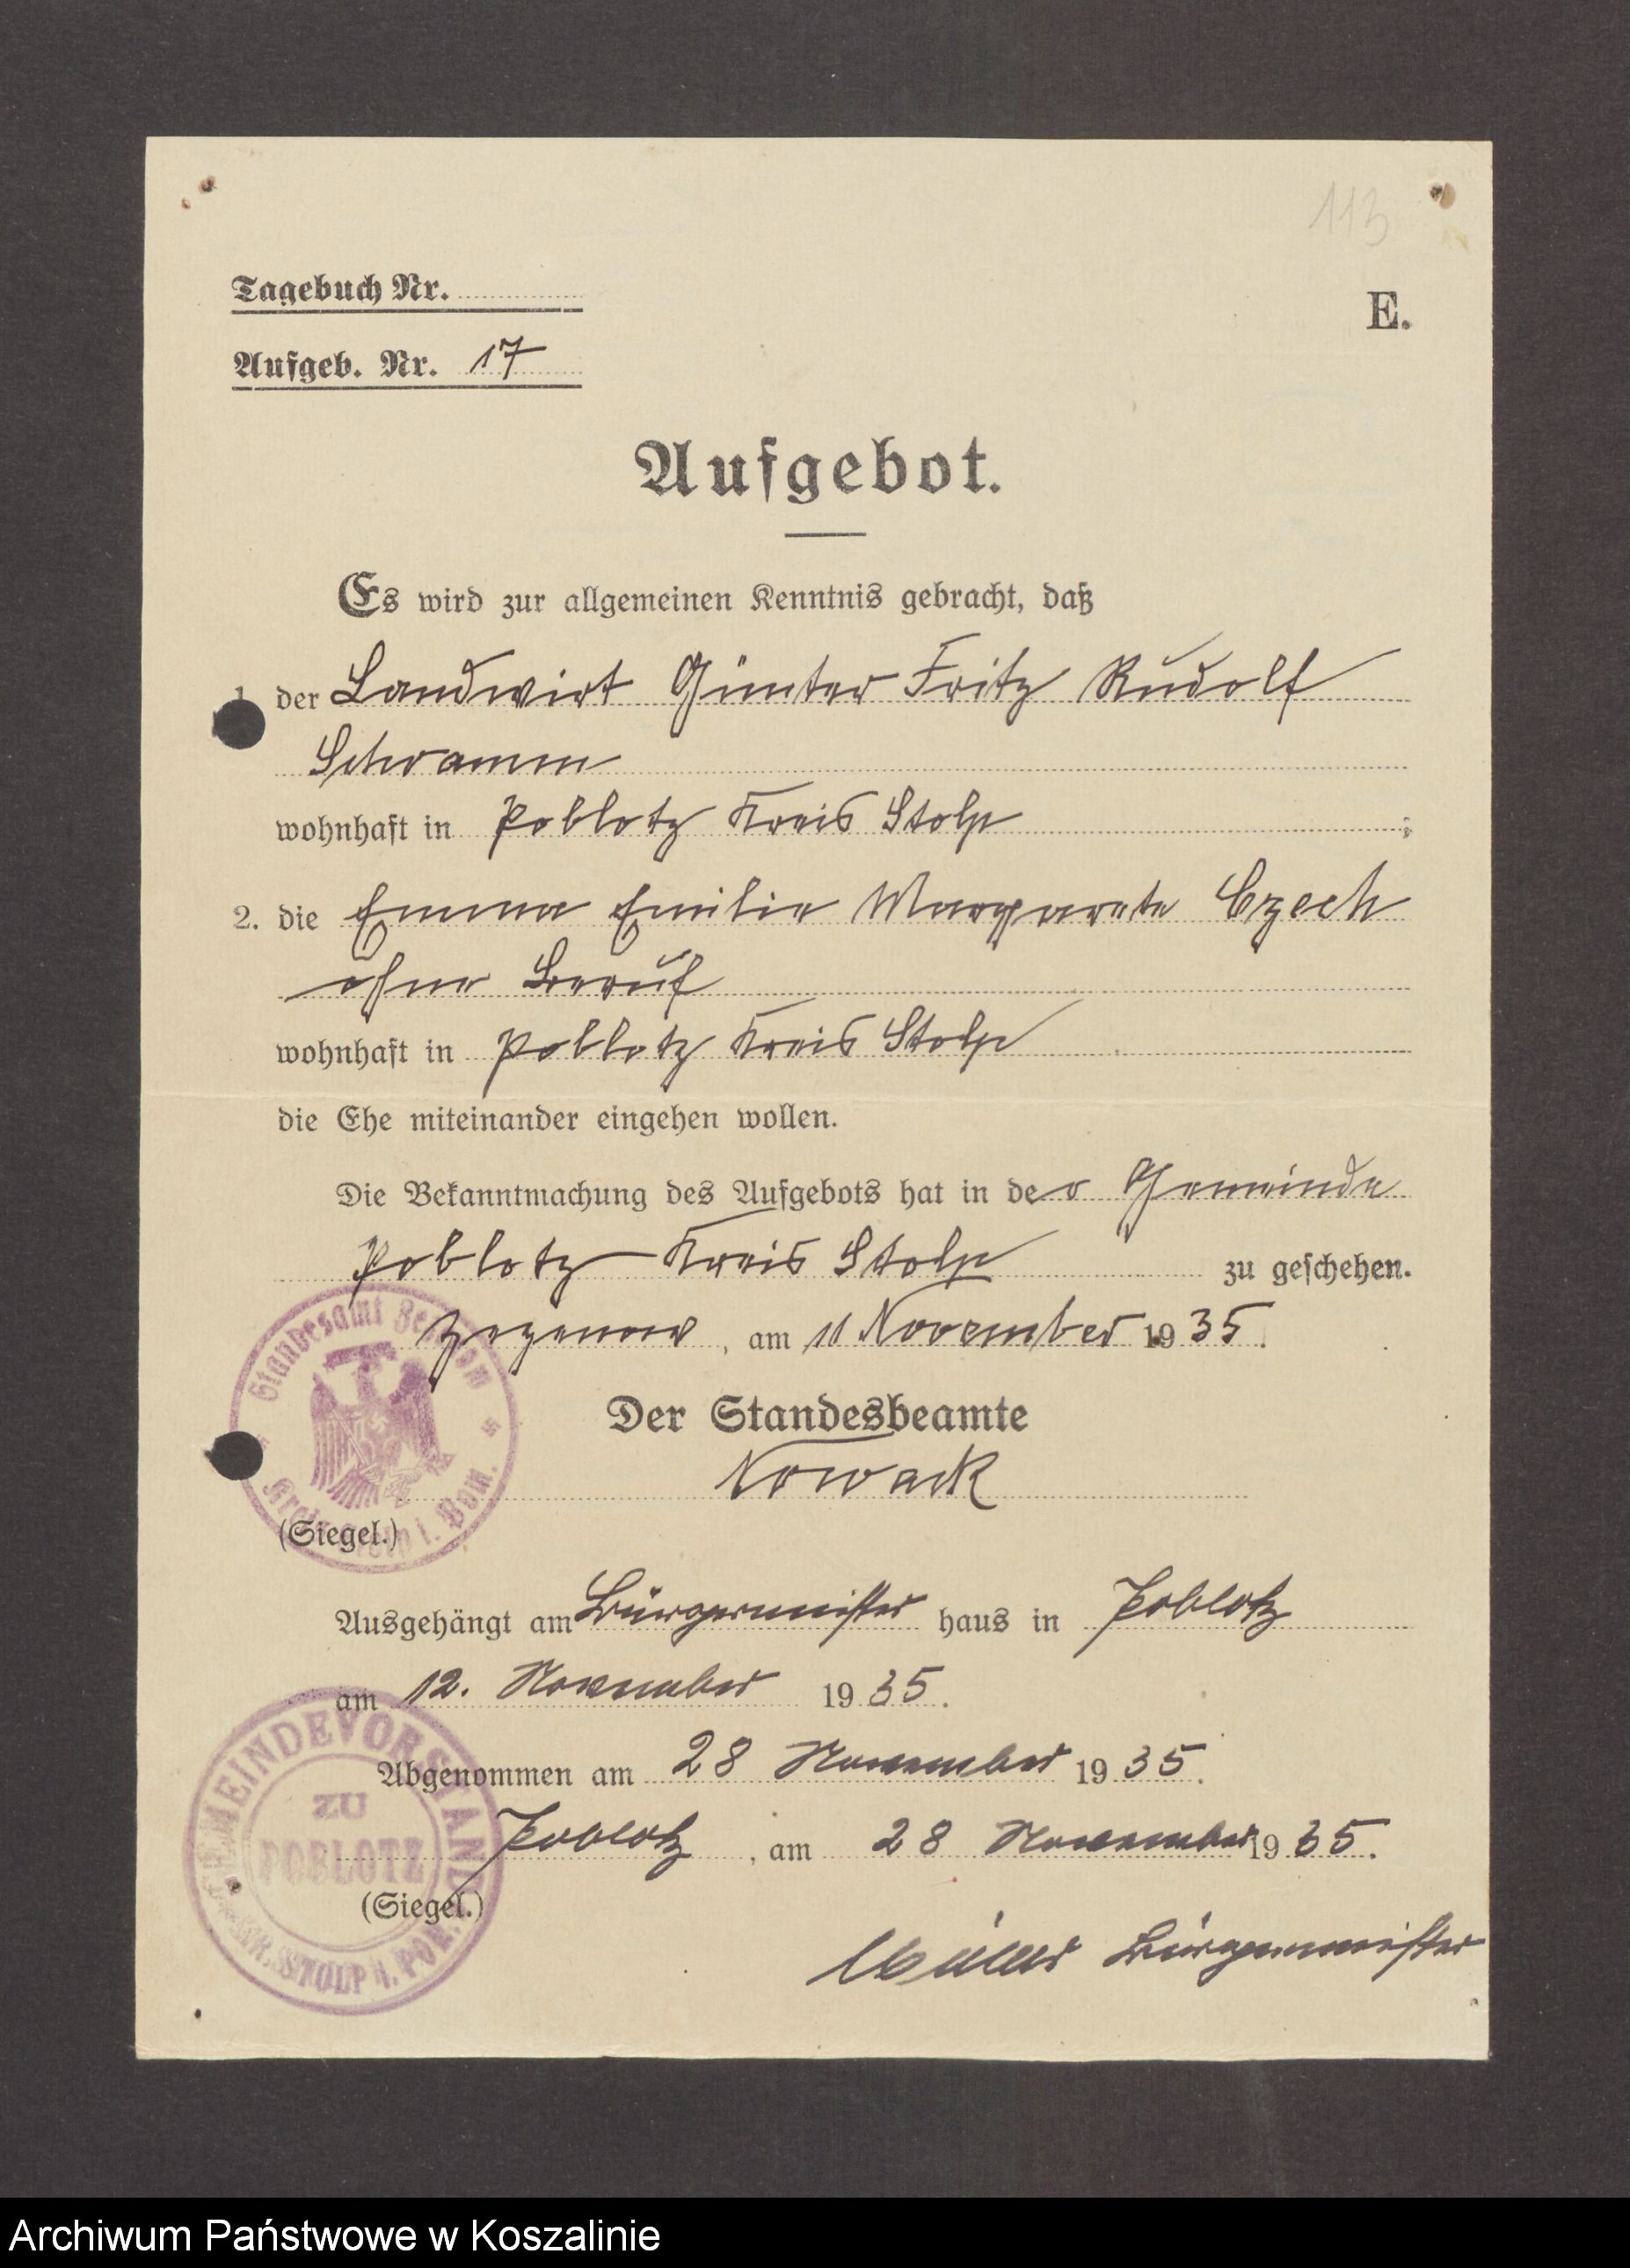 113
Tagebuch Nr.
E.
Aufgeb. Nr. 17
Aufgebot.
Es wird zur allgemeinen Kenntnis gebracht, daß
1. der Landwirt Günter Fritz Rudolf
Schramm
wohnhaft in Poblotz Kreis Stolp ;
2. die Emma Emilie Margarete Czech
ohne Beruf
wohnhaft in Poblotz Kreis Stolp
die Ehe miteinander eingehen wollen.
Die Bekanntmachung des Aufgebots hat in der Gemeinde
Poblotz Kreis Stolp zu geschehen.
Zezenow, am 11 November 1935.
Standesamt Zezenow
Kreis Stolp i. Pom.
Der Standesbeamte
Nowack
(Siegel.)
Ausgehängt am Bürgermeister haus in Poblotz
am 12. November 1935.
Abgenommen am 28 November 1935.
Poblotz, am 28 November 1935.
GEMEINDEVORSTAND
ZU
POBLOTZ
KR. STOLP i. POM.
(Siegel.)
Bürgermeister
Archiwum Państwowe w Koszalinie